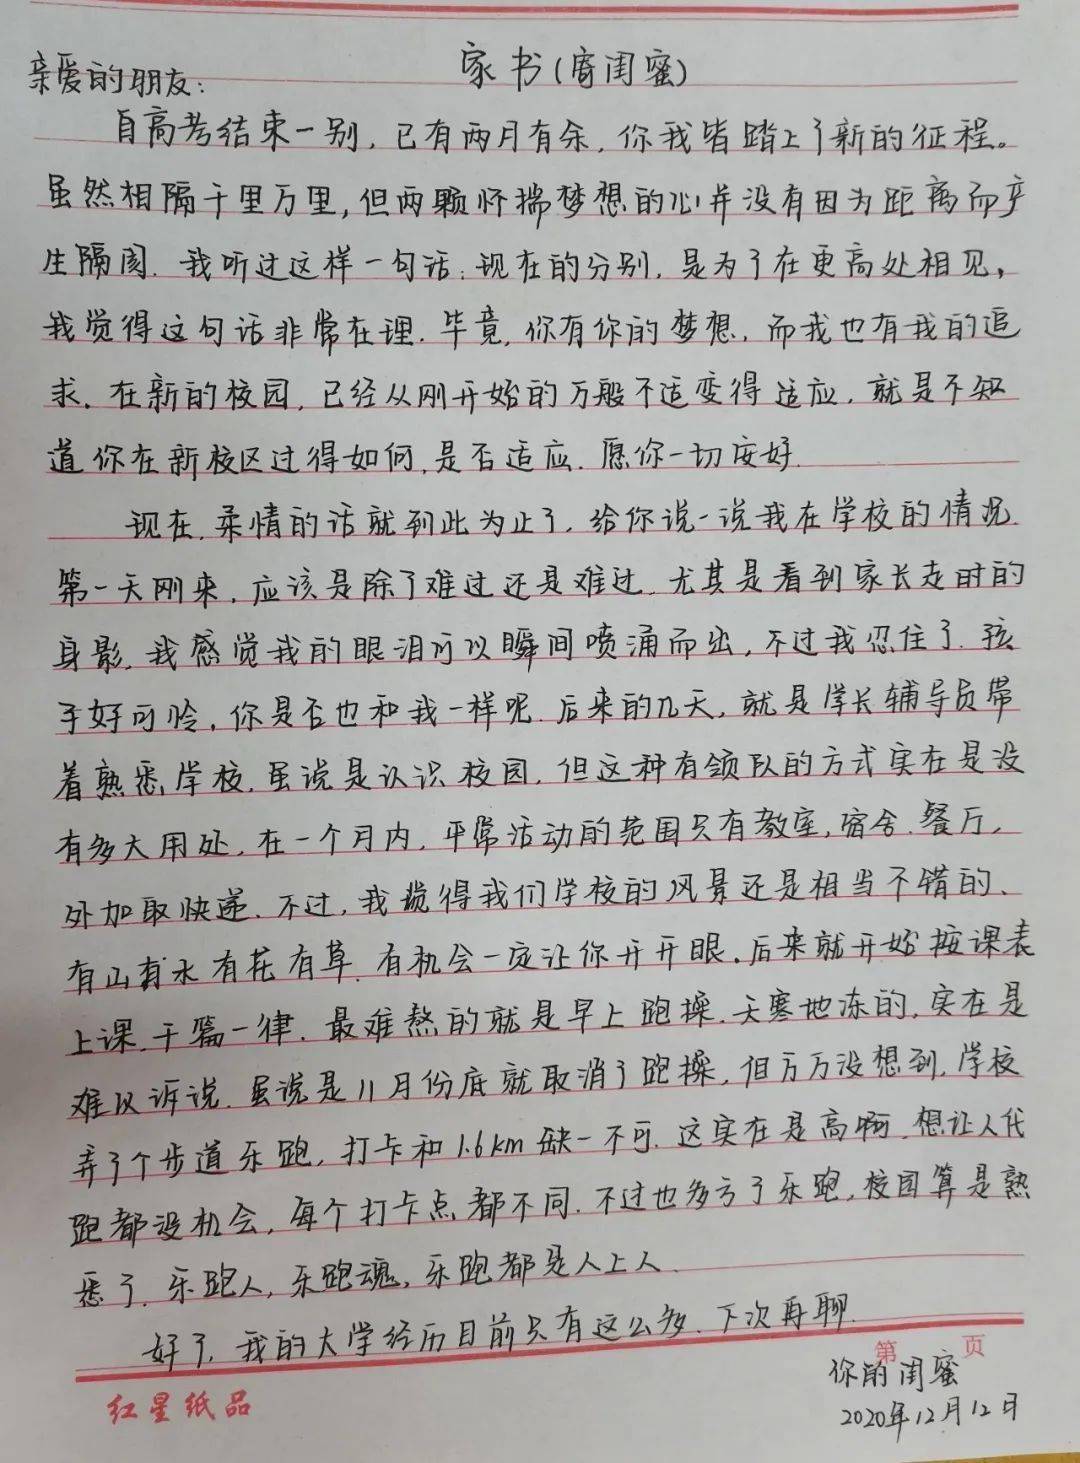 家书(寄闺蜜)
亲爱的朋友:
自高考结束一别,已有两月有余,你我皆踏上了新的征程。
虽然相隔千里万里,但两颗怀揣梦想的心并没有因为距离而产
生隔阂.我听过这样一句话:现在的分别,是为了在更高处相见,
我觉得这句话非常在理.毕竟,你有你的梦想,而我也有我的追
求.在新的校园,已经从刚开始的万般不适变得适应,就是不知
道你在新校区过得如何,是否适应.愿你一切安好.
现在,柔情的话就到此为止了,给你说一说我在学校的情况.
第一天刚来,应该是除了难过还是难过.尤其是看到家长走时的
身影,我感觉我的眼泪可以瞬间喷涌而出,不过我忍住了.孩
子好可怜,你是否也和我一样呢.后来的几天,就是学长辅导员带
着熟悉学校.虽说是认识校园,但这种有领队的方式实在是没
有多大用处,在一个月内,平常活动的范围只有教室,宿舍,餐厅,
外加取快递.不过,我觉得我们学校的风景还是相当不错的、
有山有水有花有草.有机会一定让你开开眼.后来就开始按课表
上课,千篇一律.最难熬的就是早上跑操.天寒地冻的,实在是
难以诉说.虽说是11月份底就取消了跑操,但万万没想到,学校
弄了个步道乐跑,打卡和1.6km缺一不可.这实在是高啊.想让人代
跑都没机会,每个打卡点都不同.不过也多亏了乐跑,校园算是熟
悉了.乐跑人,乐跑魂,乐跑都是人上人.
好了,我的大学经历目前只有这么多.下次再聊.
第 页
你的闺蜜
红星纸品
2020年12月12日